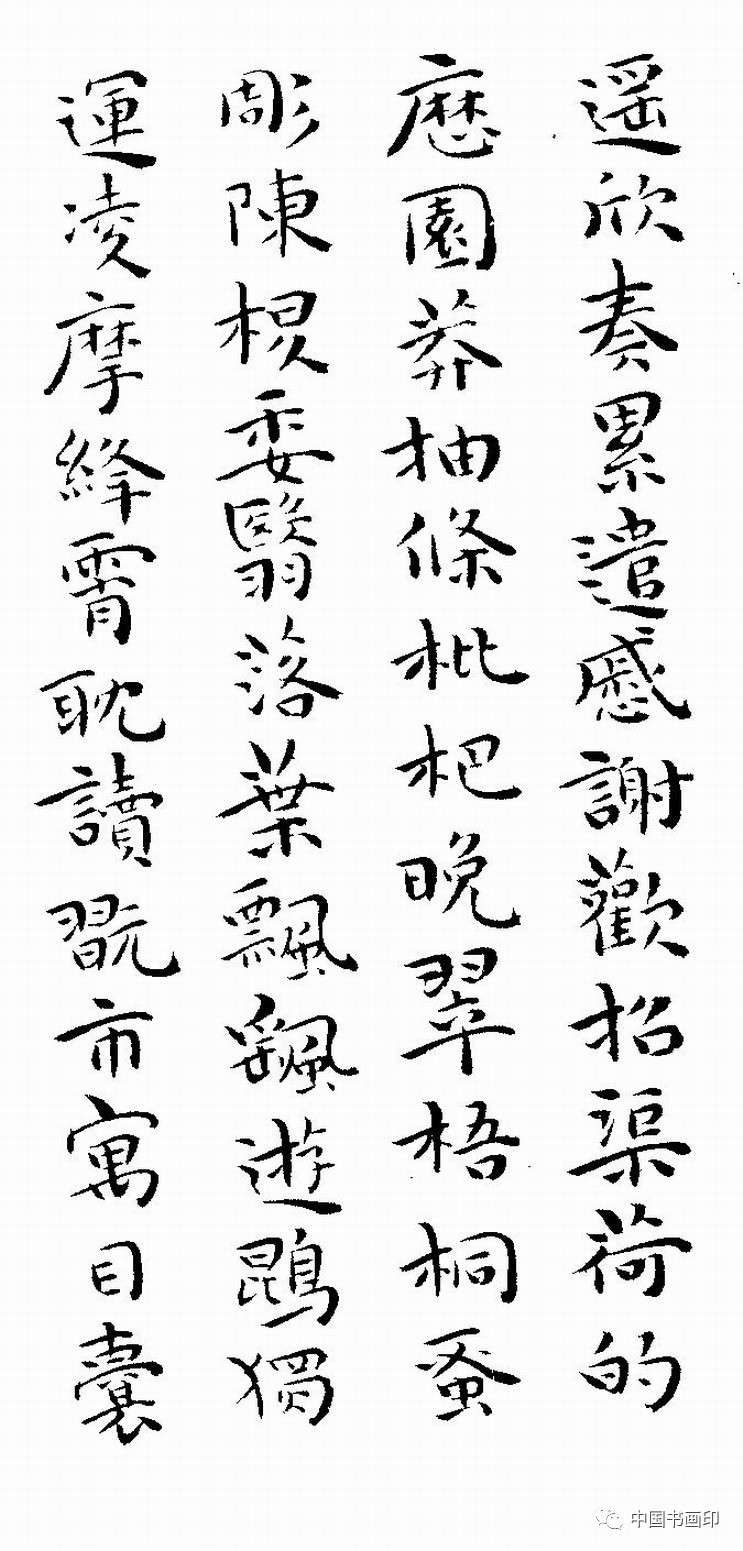 遥欣奏累遣慼謝歡招渠荷的
歷園莽抽條枇杷晚翠梧桐蚤
彫陳根委翳落葉飄颻遊鵾獨
運凌摩絳霄耽讀翫市寓目囊
中国书画印